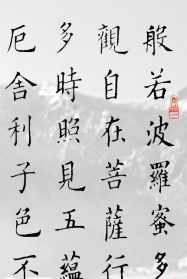 般若波羅蜜多
觀自在菩薩行
多時照見五蘊
厄舍利子色不